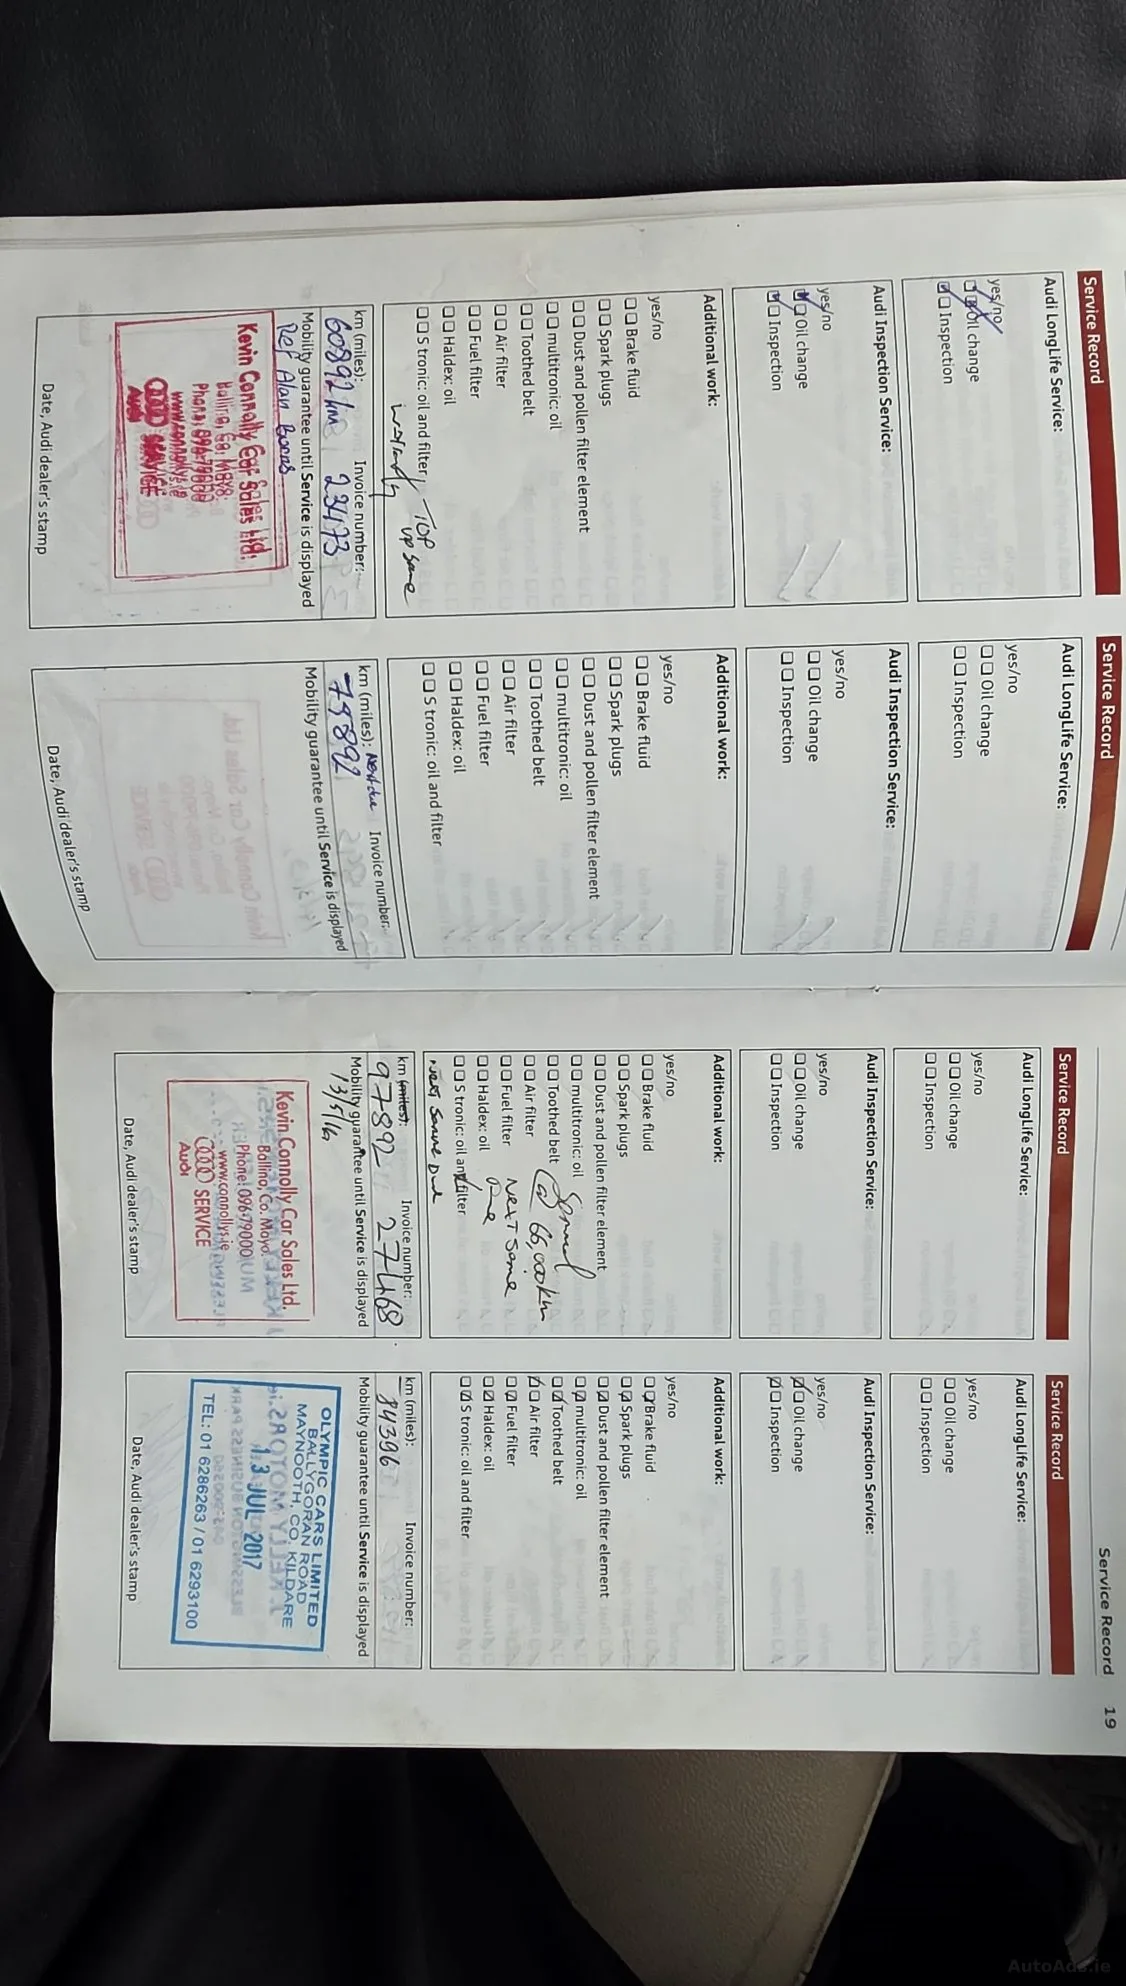 Service Record 19
Service Record
Audi LongLife Service:
yes/no
Oil change
Inspection
Audi Inspection Service:
yes/no
Oil change
Inspection
Additional work:
yes/no
Brake fluid
Spark plugs
Dust and pollen filter element
multitronic: oil
Toothed belt
Air filter
Fuel filter
Haldex: oil
S tronic: oil and filter
TOP
up same
km (miles): Invoice number:
60892 km 23473
Mobility guarantee until Service is displayed
Ref Alan
Kevin Connolly Car Sales Ltd.
Ballina, Co. Mayo.
Phone: 096-79000
www.connollys.ie
Audi SERVICE
Date, Audi dealer's stamp
Service Record
Audi LongLife Service:
yes/no
Oil change
Inspection
Audi Inspection Service:
yes/no
Oil change
Inspection
Additional work:
yes/no
Brake fluid
Spark plugs
Dust and pollen filter element
multitronic: oil
Toothed belt
Air filter
Fuel filter
Haldex: oil
S tronic: oil and filter
km (miles): Next due Invoice number:
75892
Mobility guarantee until Service is displayed
Date, Audi dealer's stamp
Service Record
Audi LongLife Service:
yes/no
Oil change
Inspection
Audi Inspection Service:
yes/no
Oil change
Inspection
Additional work:
yes/no
Brake fluid
Spark plugs
Dust and pollen filter element
multitronic: oil
Toothed belt @ 66,000 km
Air filter
Fuel filter Next Same
Haldex: oil Due
S tronic: oil and filter
Next Same Due
km (miles): Invoice number:
97892 27468
Mobility guarantee until Service is displayed
13/5/16
Kevin Connolly Car Sales Ltd.
Ballina, Co. Mayo.
Phone: 096-79000
www.connollys.ie
SERVICE
Audi
Date, Audi dealer's stamp
Service Record
Audi LongLife Service:
yes/no
Oil change
Inspection
Audi Inspection Service:
yes/no
Oil change
Inspection
Additional work:
yes/no
Brake fluid
Spark plugs
Dust and pollen filter element
multitronic: oil
Toothed belt
Air filter
Fuel filter
Haldex: oil
S tronic: oil and filter
km (miles): Invoice number:
84396
Mobility guarantee until Service is displayed
OLYMPIC CARS LIMITED
BALLYGORAN ROAD
MAYNOOTH, CO. KILDARE
13 JUL 2017
TEL: 01 6286263 / 01 6293100
Date, Audi dealer's stamp
AutoAds.ie